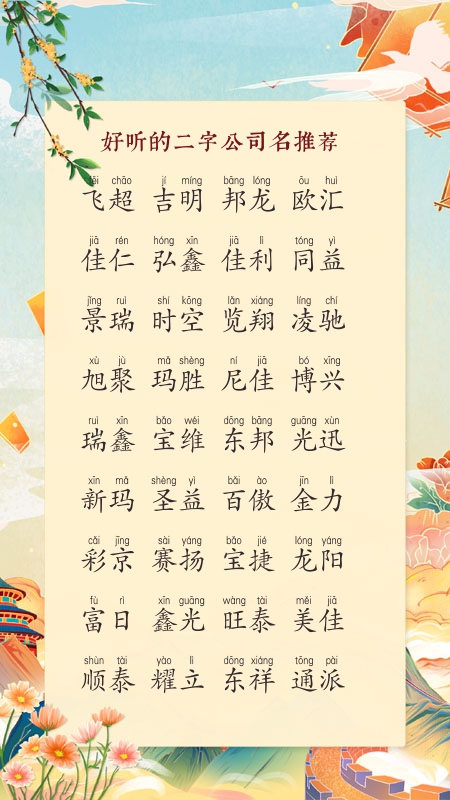 好听的二字公司名推荐
fēi chāo jí míng bāng lóng ōu huì
飞超 吉明 邦龙 欧汇
jiā rén hóng xīn jiā lì tóng yì
佳仁 弘鑫 佳利 同益
jǐng ruì shí kōng lǎn xiáng líng chí
景瑞 时空 览翔 凌驰
xù jù mǎ shèng ní jiā bó xīng
旭聚 玛胜 尼佳 博兴
ruì xīn bǎo wéi dōng bāng guāng xùn
瑞鑫 宝维 东邦 光迅
xīn mǎ shèng yì bǎi ào jīn lì
新玛 圣益 百傲 金力
cǎi jīng sài yáng bǎo jié lóng yáng
彩京 赛扬 宝捷 龙阳
fù rì xīn guāng wàng tài měi jiā
富日 鑫光 旺泰 美佳
shùn tài yào lì dōng xiáng tōng pài
顺泰 耀立 东祥 通派